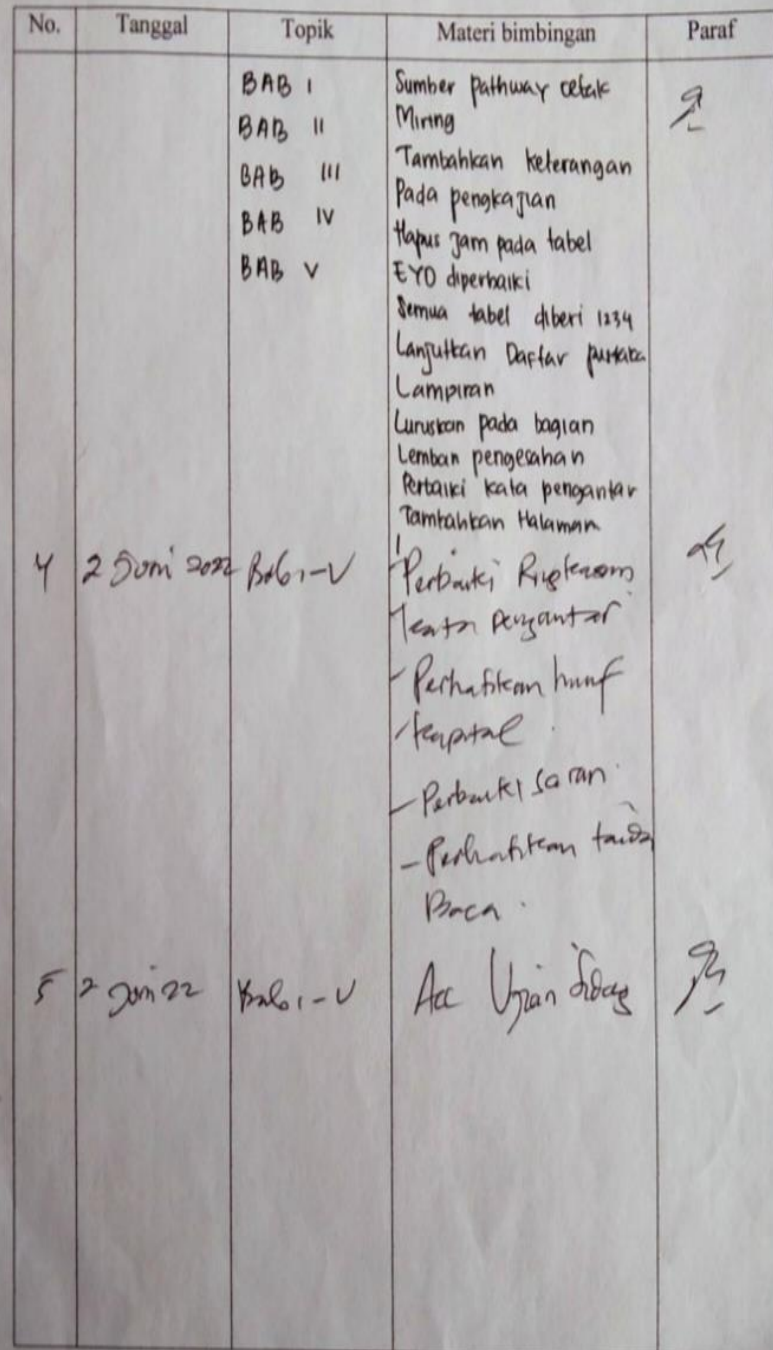 No. Tanggal Topik Materi bimbingan Paraf
BAB I Sumber pathway cetak
BAB II Miring
BAB III Tambahkan keterangan
Pada pengkajian
BAB IV Hapus Jam pada tabel
BAB V EYD diperbaiki
Semua tabel diberi 1234
Lanjutkan Daftar pustaka
Lampiran
Luruskan pada bagian
Lembar pengesahan
Perbaiki kata pengantar
Tambahkan Halaman
4 2 Juni 2022 Bab I-V Perbaiki Ringkasan
kata pengantar
- Perhatikan huruf
kapital.
- Perbaiki saran.
- Perhatikan tanda
Baca.
5 2 Juni 22 Bab I-V Acc Ujian Sidang